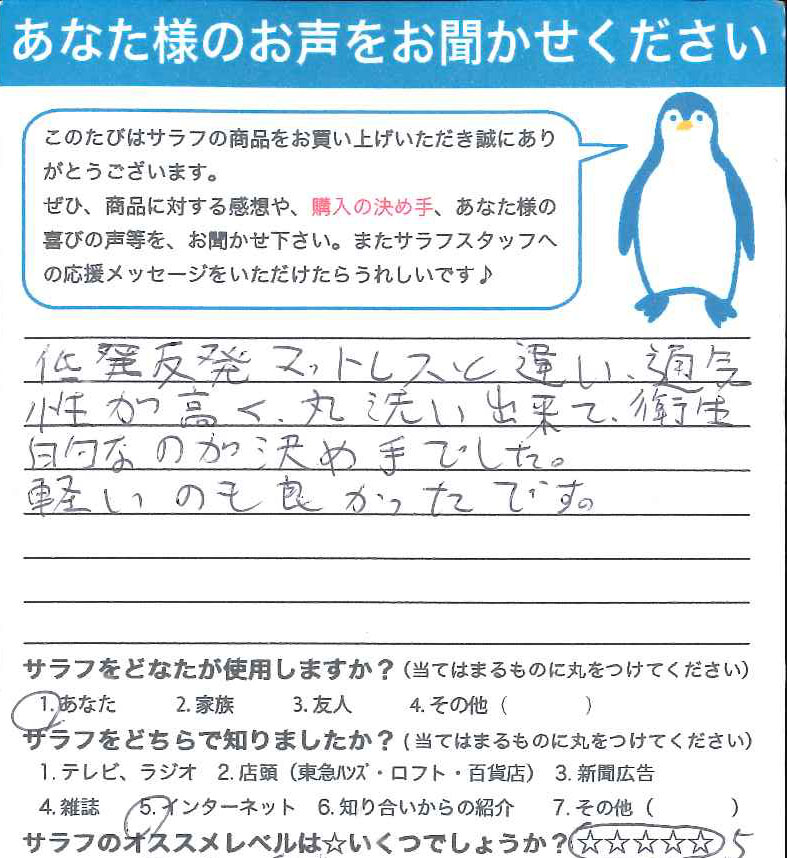 あなた様のお声をお聞かせください
このたびはサラフの商品をお買い上げいただき誠にあり
がとうございます。
ぜひ、商品に対する感想や、購入の決め手、あなた様の
喜びの声等を、お聞かせ下さい。またサラフスタッフへ
の応援メッセージをいただけたらうれしいです♪
低反発マットレスと違い、通気
性が高く、丸洗い出来て、衛生
的なのが決め手でした。
軽いのも良かったです。
サラフをどなたが使用しますか？（当てはまるものに丸をつけてください）
1. あなた 2. 家族 3. 友人 4. その他（ ）
サラフをどちらで知りましたか？（当てはまるものに丸をつけてください）
1. テレビ、ラジオ 2. 店頭（東急ハンズ・ロフト・百貨店） 3. 新聞広告
4. 雑誌 5. インターネット 6. 知り合いからの紹介 7. その他（ ）
サラフのオススメレベルは☆いくつでしょうか？☆☆☆☆☆ 5